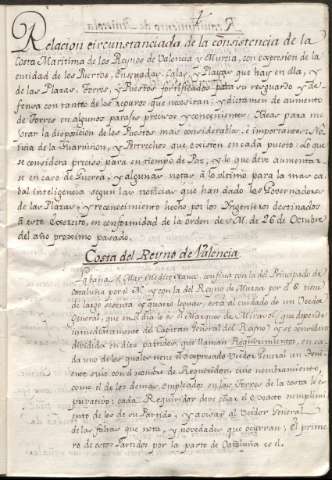 Relacion circunstanciada de la consistencia de la
Costa Maritima de los Reynos de Valencia y Murcia, con expresion de la
entidad de los Puertos, Ensenadas, Calas, y Playas que hay en ella, y
de las Plazas, Torres, y Puestos fortificados para su resguardo y de-
fensa con tanteo de los reparos que necesitan, y dictamen de aumento
de Torres en algunos parajes precisos y convenientes: Ideas para me-
jorar la disposicion de los Puestos mas considerables, è importantes: No-
ticia de la Guarnicion, y Pertrechos que existen en cada puesto: Lo que
se considera preciso para en tiempo de Paz, y lo que debe aumentar-
se en caso de Guerra, y algunas notas à lo ultimo para la mas ca-
bal inteligencia segun las noticias que han dado los Governadores
de las Plazas, y reconocimiento hecho por los Ingenieros destinados
à este Exercito, en conformidad de la orden de S.M. de 26 de Octubre
del año proximo pasado.
Costa del Reyno de Valencia.
La baña el Mar Mediterraneo, confina con la del Principado de
Cataluña por el N. y con la del Reyno de Murcia por el S. tiene
de largo sesenta y quatro leguas, está al cuidado de un Veedor
General, que en el dia lo es el Marques de Mirasol, que depende
inmediatamente del Capitan General del Reyno, y se considera
dividida en diez partidos, que llaman Requerimientos, en ca-
da uno de los quales tiene el expresado Veedor General un Tenien-
te suyo con el nombre de Requeridor, cuio nombramiento,
como el de los demas empleados en las Torres de la costa le es
privativo; cada Requiridor debe celar el exacto cumplimi-
ento de los de su Partido, y avisar al Veedor General
de las faltas que nota, y novedades que ocurran: El prime-
ro de estos Partidos por la parte de Cataluña es el